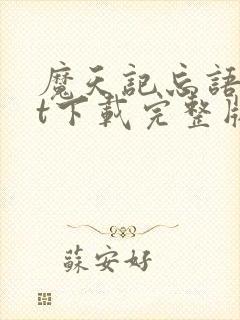 魔天記忘語
t下載完整版
蘇安好